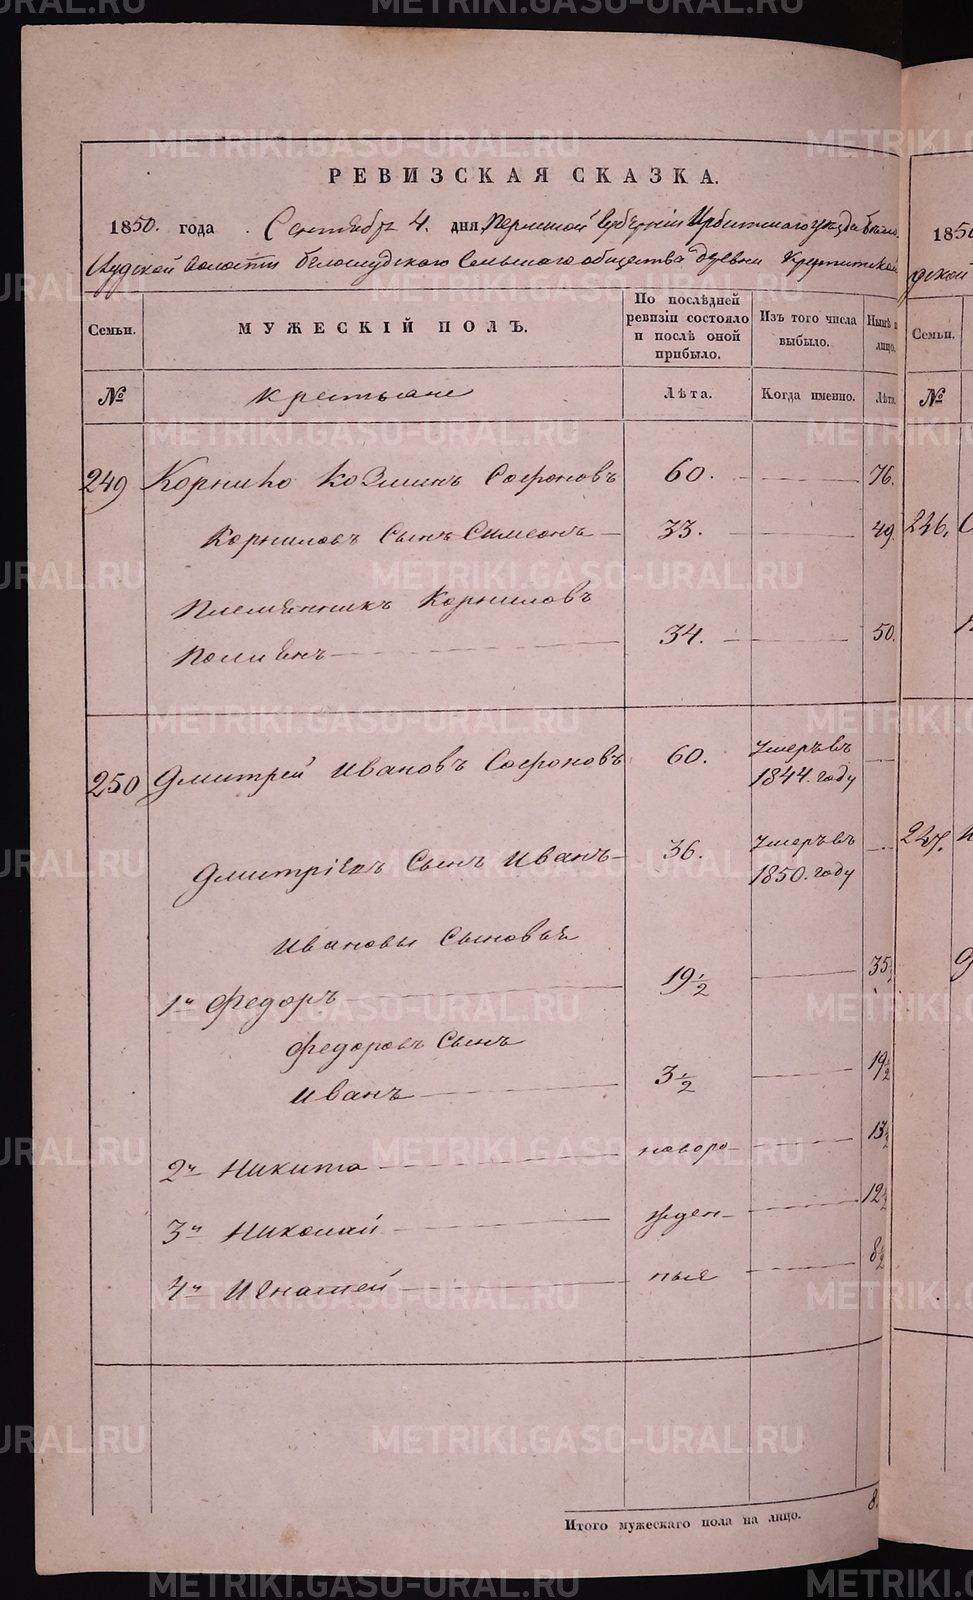 РЕВИЗСКАЯ СКАЗКА.
1850. года Сентября 4. дня Пермской Губерніи Ирбитского уѣзда Бело
слудской волости белослудского Сельского общества деревни
Семьи.
МУЖЕСКІЙ ПОЛЪ.
По послѣдней ревизіи состояло и послѣ оной прибыло.
Изъ того числа выбыло.
Нынѣ на лицо.
№
крестьяне
Лѣта.
Когда именно.
Лѣта.
249 Корнило Козминъ Софоновъ 60. 76.
Корниловъ Сынъ Симеонъ 33. 49.
Племянникъ Корниловъ
34. 50.
250 Дмитрей Ивановъ Софоновъ 60. Умеръ въ 1844. году
Дмитріевъ Сынъ Иванъ 36. Умеръ въ 1850. году
Ивановы Сыновья
1й Федоръ 19½ 35½
Федоровъ Сынъ
Иванъ 3½ 19½
2й Никита новоро 13½
3й Николай жден 12½
4й Игнатей ные 8½
Итого мужескаго пола на лицо. 8.
185
дской
Семьи.
№
246.
247.
METRIKI.GASO-URAL.RU